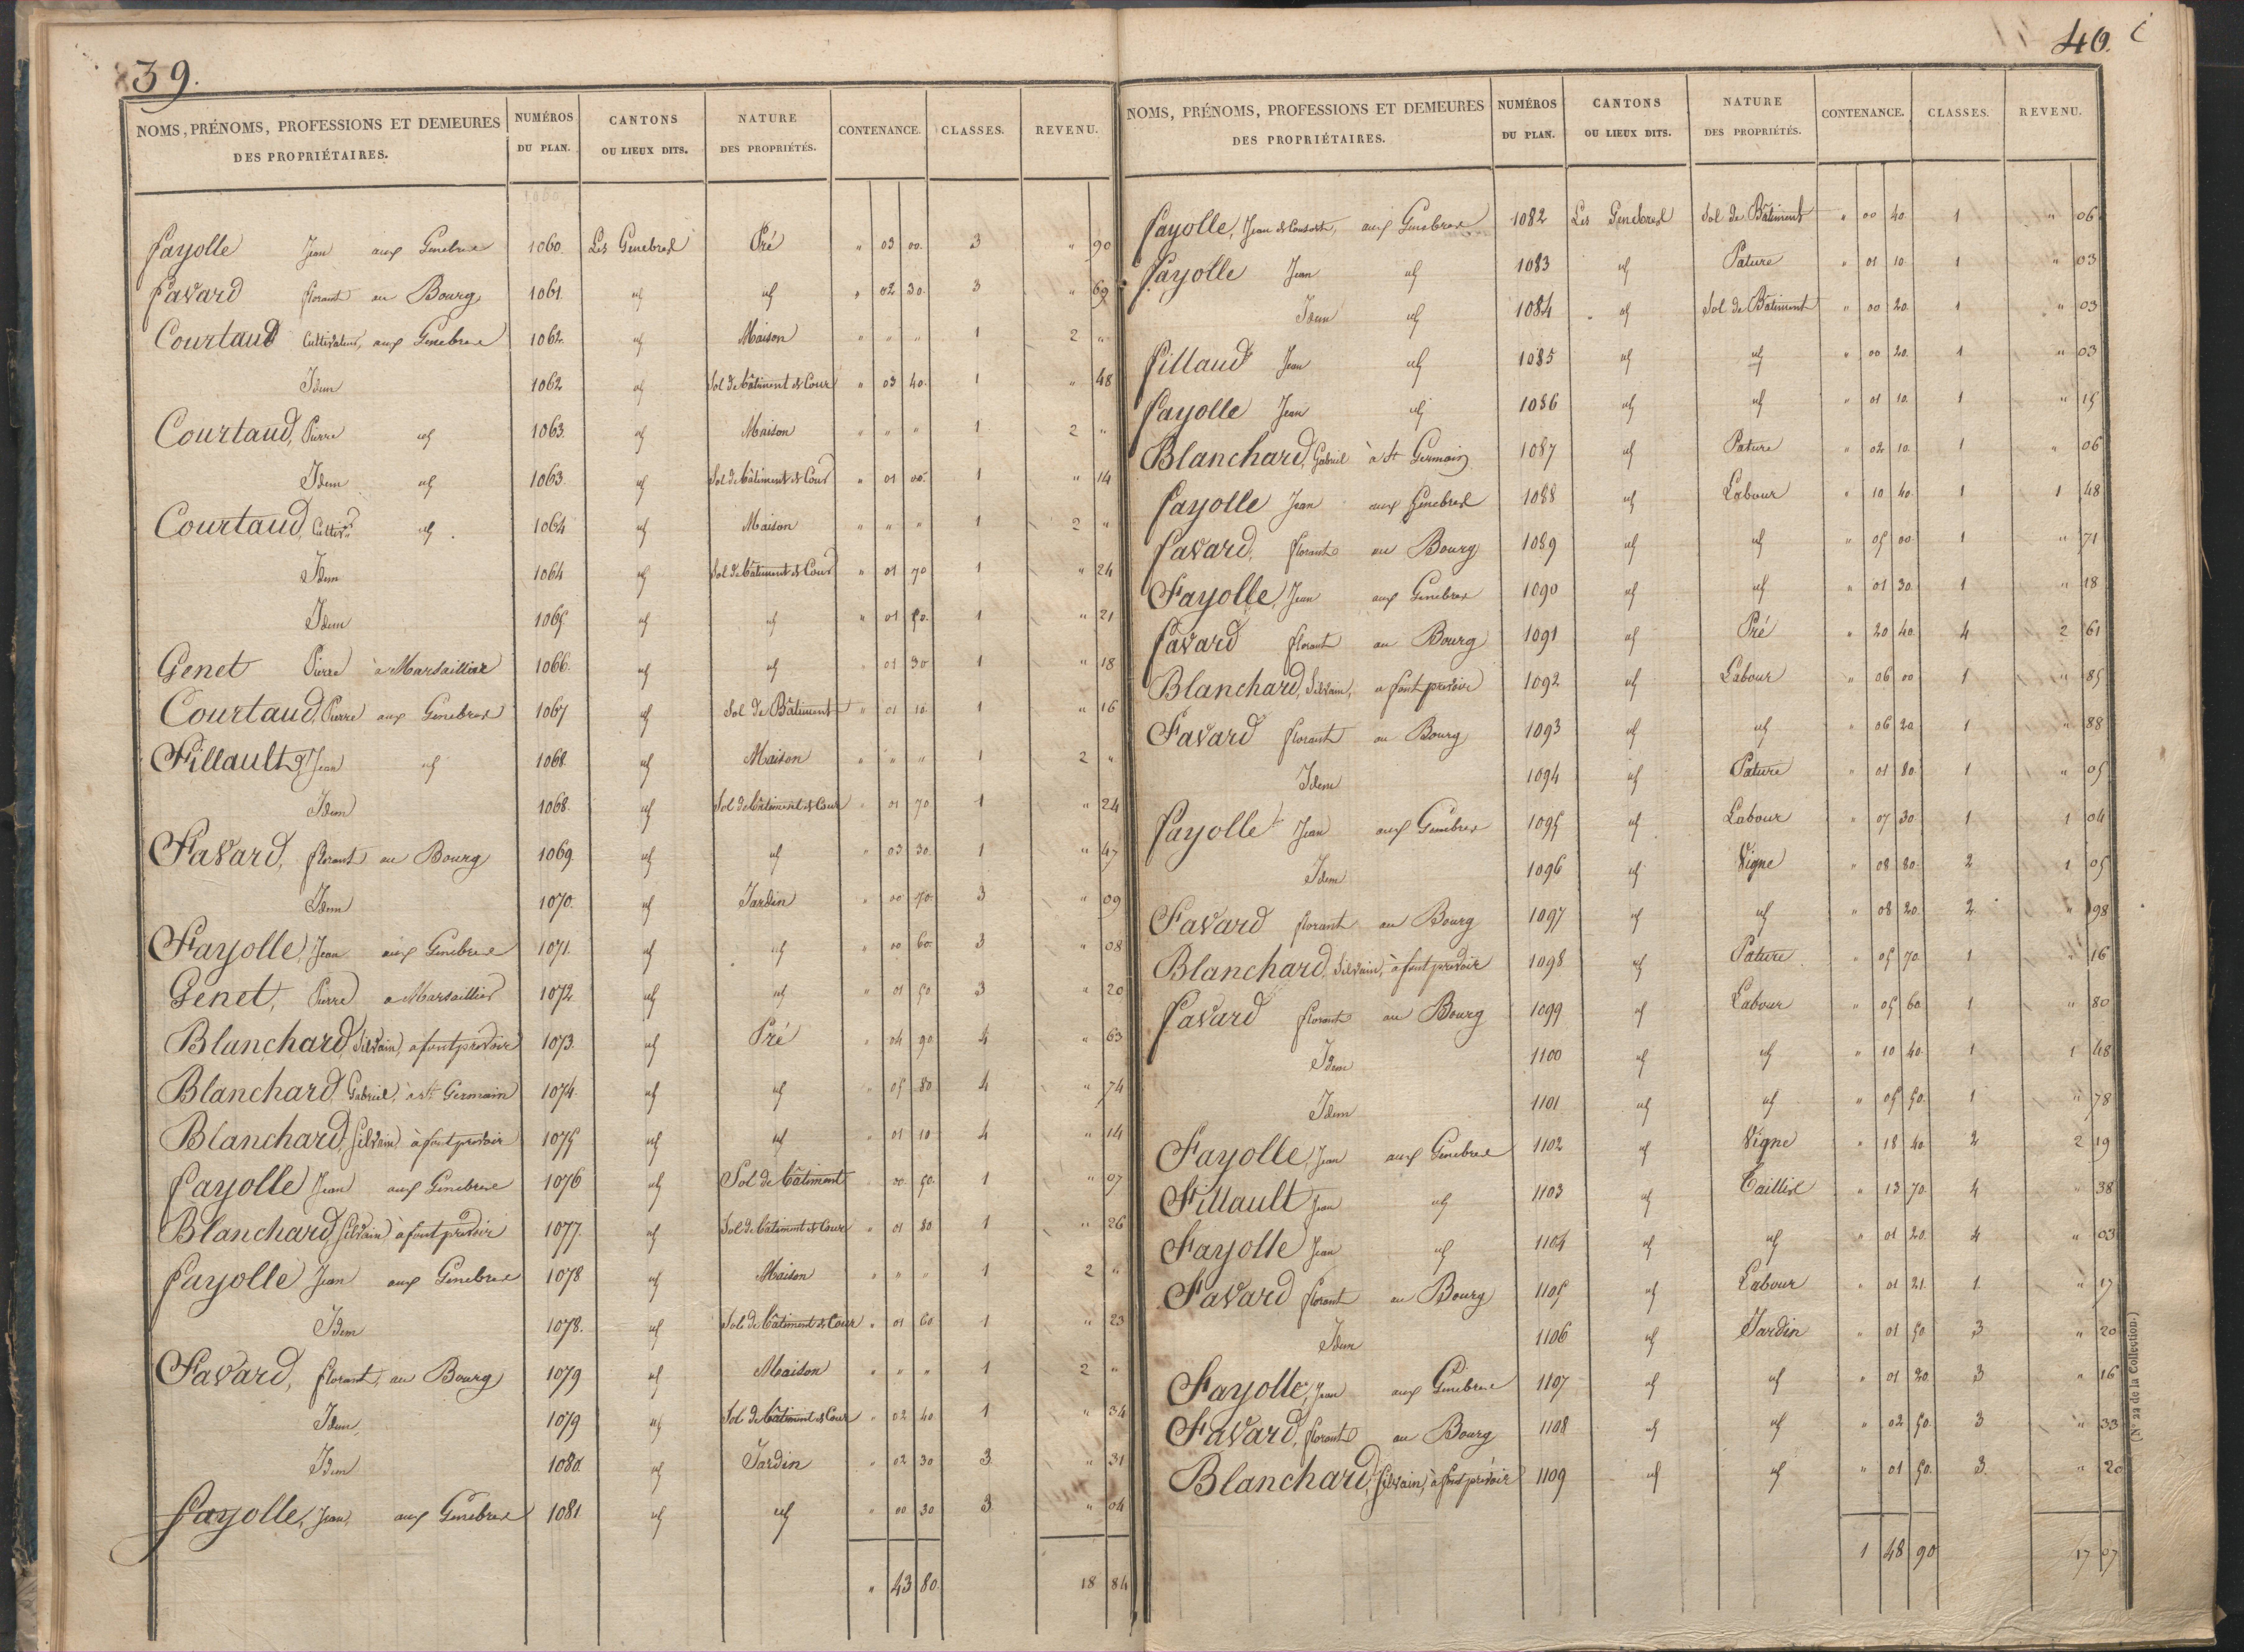 39.
NOMS, PRÉNOMS, PROFESSIONS ET DEMEURES DES PROPRIÉTAIRES. NUMÉROS DU PLAN. CANTONS OU LIEUX DITS. NATURE DES PROPRIÉTÉS. CONTENANCE. CLASSES. REVENU.
Fayolle Jean aux Genebres 1060. Les Genebres Pré " 03 00. 3 " 90
Favard florant au Bourg 1061 id id " 02 30. 3 " 69
Courtaud Cultivateur, aux Genebres 1062. id Maison " " " 1 2 "
Idem 1062 id Sol de bâtiment et Cour " 03 40. 1 " 48
Courtaud, Pierre id 1063. id Maison " " " 1 2 "
Idem id 1063. id Sol de bâtiment et Cour " 01 00. 1 " 14
Courtaud, Cultivr. id. 1064 id Maison " " " 1 2 "
Idem 1064 id Sol de bâtiment et Cour " 01 70 1 " 24
Idem 1065 id id " 01 50. 1 " 21
Genet Pierre à Marsaillier 1066. id id " 01 30 1 " 18
Courtaud, Pierre aux Genebres 1067 id Sol de Bâtiment " 01 10. 1 " 16
Fillault, Jean id 1068. id Maison " " " 1 2 "
Idem 1068. id Sol de bâtiment et Cour " 01 70 1 " 24
Favard, florant au Bourg 1069. id id " 03 30. 1 " 47
Idem 1070. id Jardin " 00 70. 3 " 09
Fayolle, Jean aux Genebres 1071. id id " 00 60. 3 " 08
Genet, Pierre a Marsaillier 1072 id id " 01 50. 3 " 20
Blanchard, Silvain, a fontprevoire 1073. id Pré " 04 90. 4 " 63
Blanchard, Gabriel, à St Germain 1074. id id " 05 80 4 " 74
Blanchard, Silvain, à fontprevoir 1075 id id " 01 10 4 " 14
Fayolle Jean aux Genebres 1076 id Sol de bâtiment " 00 50. 1 " 07
Blanchard, Silvain à fontprevoir 1077. id Sol de bâtiment et Cour " 01 80 1 " 26
Fayolle Jean aux Genebres 1078 id Maison " " " 1 2 "
Idem 1078. id Sol de bâtiment et Cour " 01 60 1 " 23
Favard, florant, au Bourg 1079 id Maison " " " 1 2 "
Idem 1079 id Sol de bâtiment et Cour " 02 40. 1 " 34
Idem 1080. id Jardin " 02 30 3 " 31
Fayolle, Jean, aux Genebres 1081 id id " 00 30 3 " 04
" 43 80. 18 84
40.
NOMS, PRÉNOMS, PROFESSIONS ET DEMEURES DES PROPRIÉTAIRES. NUMÉROS DU PLAN. CANTONS OU LIEUX DITS. NATURE DES PROPRIÉTÉS. CONTENANCE. CLASSES. REVENU.
Fayolle, Jean et Consorts, aux Genebres 1082 Les Genebres Sol de Bâtiment " 00 40 1 " 06
Fayolle Jean id 1083 id Pature " 01 10 1 " 03
Idem id 1084 id Sol de Bâtiment " 00 20. 1 " 03
Fillaud Jean id 1085 id id " 00 20. 1 " 03
Fayolle Jean id 1086 id id " 01 10. 1 " 15
Blanchard, Gabriel à St Germain 1087 id Pature " 02 10. 1 " 06
Fayolle Jean aux Genebres 1088 id Labour " 10 40. 1 1 48
Favard, florant au Bourg 1089 id id " 05 00 1 " 71
Fayolle, Jean aux Genebres 1090 id id " 01 30. 1 " 18
Favard florant au Bourg 1091 id Pré " 20 40. 4 2 61
Blanchard, Silvain, a font prevoire 1092 id Labour " 06 00 1 " 85
Favard florant au Bourg 1093 id id " 06 20 1 " 88
Idem 1094 id Pature " 01 80 1 " 05
Fayolle Jean aux Genebres 1095 id Labour " 07 30 1 1 04
Idem 1096 id Vigne " 08 80. 2 1 05
Favard florant au Bourg 1097 id id " 08 20. 2 " 98
Blanchard, Silvain, à font prevoir 1098 id Pature " 05 70. 1 " 16
Favard florant au Bourg 1099 id Labour " 05 60. 1 " 80
Idem 1100 id id " 10 40. 1 1 48
Idem 1101 id id " 05 50. 1 " 78
Fayolle, Jean aux Genebres 1102 id Vigne " 18 40. 2 2 19
Fillault Jean id 1103 id Taillis " 13 70. 4 " 38
Fayolle Jean id 1104 id id " 01 20. 4 " 03
Favard florant au Bourg 1105 id Labour " 01 21. 1 " 17
Idem 1106 id Jardin " 01 50 3 " 20
Fayolle, Jean aux Genebres 1107 id id " 01 20. 3 " 16
Favard, florant au Bourg 1108 id id " 02 50. 3 " 33
Blanchard, Silvain, à font prevoir 1109 id id " 01 50. 3 " 20
1 48 90 17 07
(N° 22 de la Collection.)